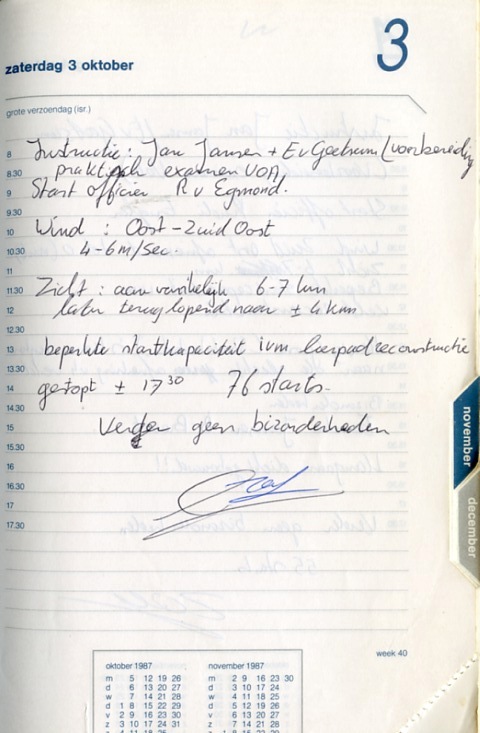 3
zaterdag 3 oktober
grote verzoendag (isr.)
8 Instructie: Jan Jansen + E v Goethem (voorbereiding
8.30 praktisch examen VOA)
9 Start officier R v Egmond.
9.30
10 Wind: Oost - Zuid Oost
10.30 4-6m/sec.
11
11.30 Zicht: aanvankelijk 6-7 km
12 later teruglopend naar ± 4 km
12.30
13 beperkte startkapaciteit ivm lierpadreconstructie
13.30
14 gestopt ± 17³⁰ 76 starts.
14.30
15 Verder geen bizonderheden
15.30
16
16.30
17
17.30
november
december
week 40
oktober 1987 november 1987
m 5 12 19 26 m 2 9 16 23 30
d 6 13 20 27 d 3 10 17 24
w 7 14 21 28 w 4 11 18 25
d 1 8 15 22 29 d 5 12 19 26
v 2 9 16 23 30 v 6 13 20 27
z 3 10 17 24 31 z 7 14 21 28